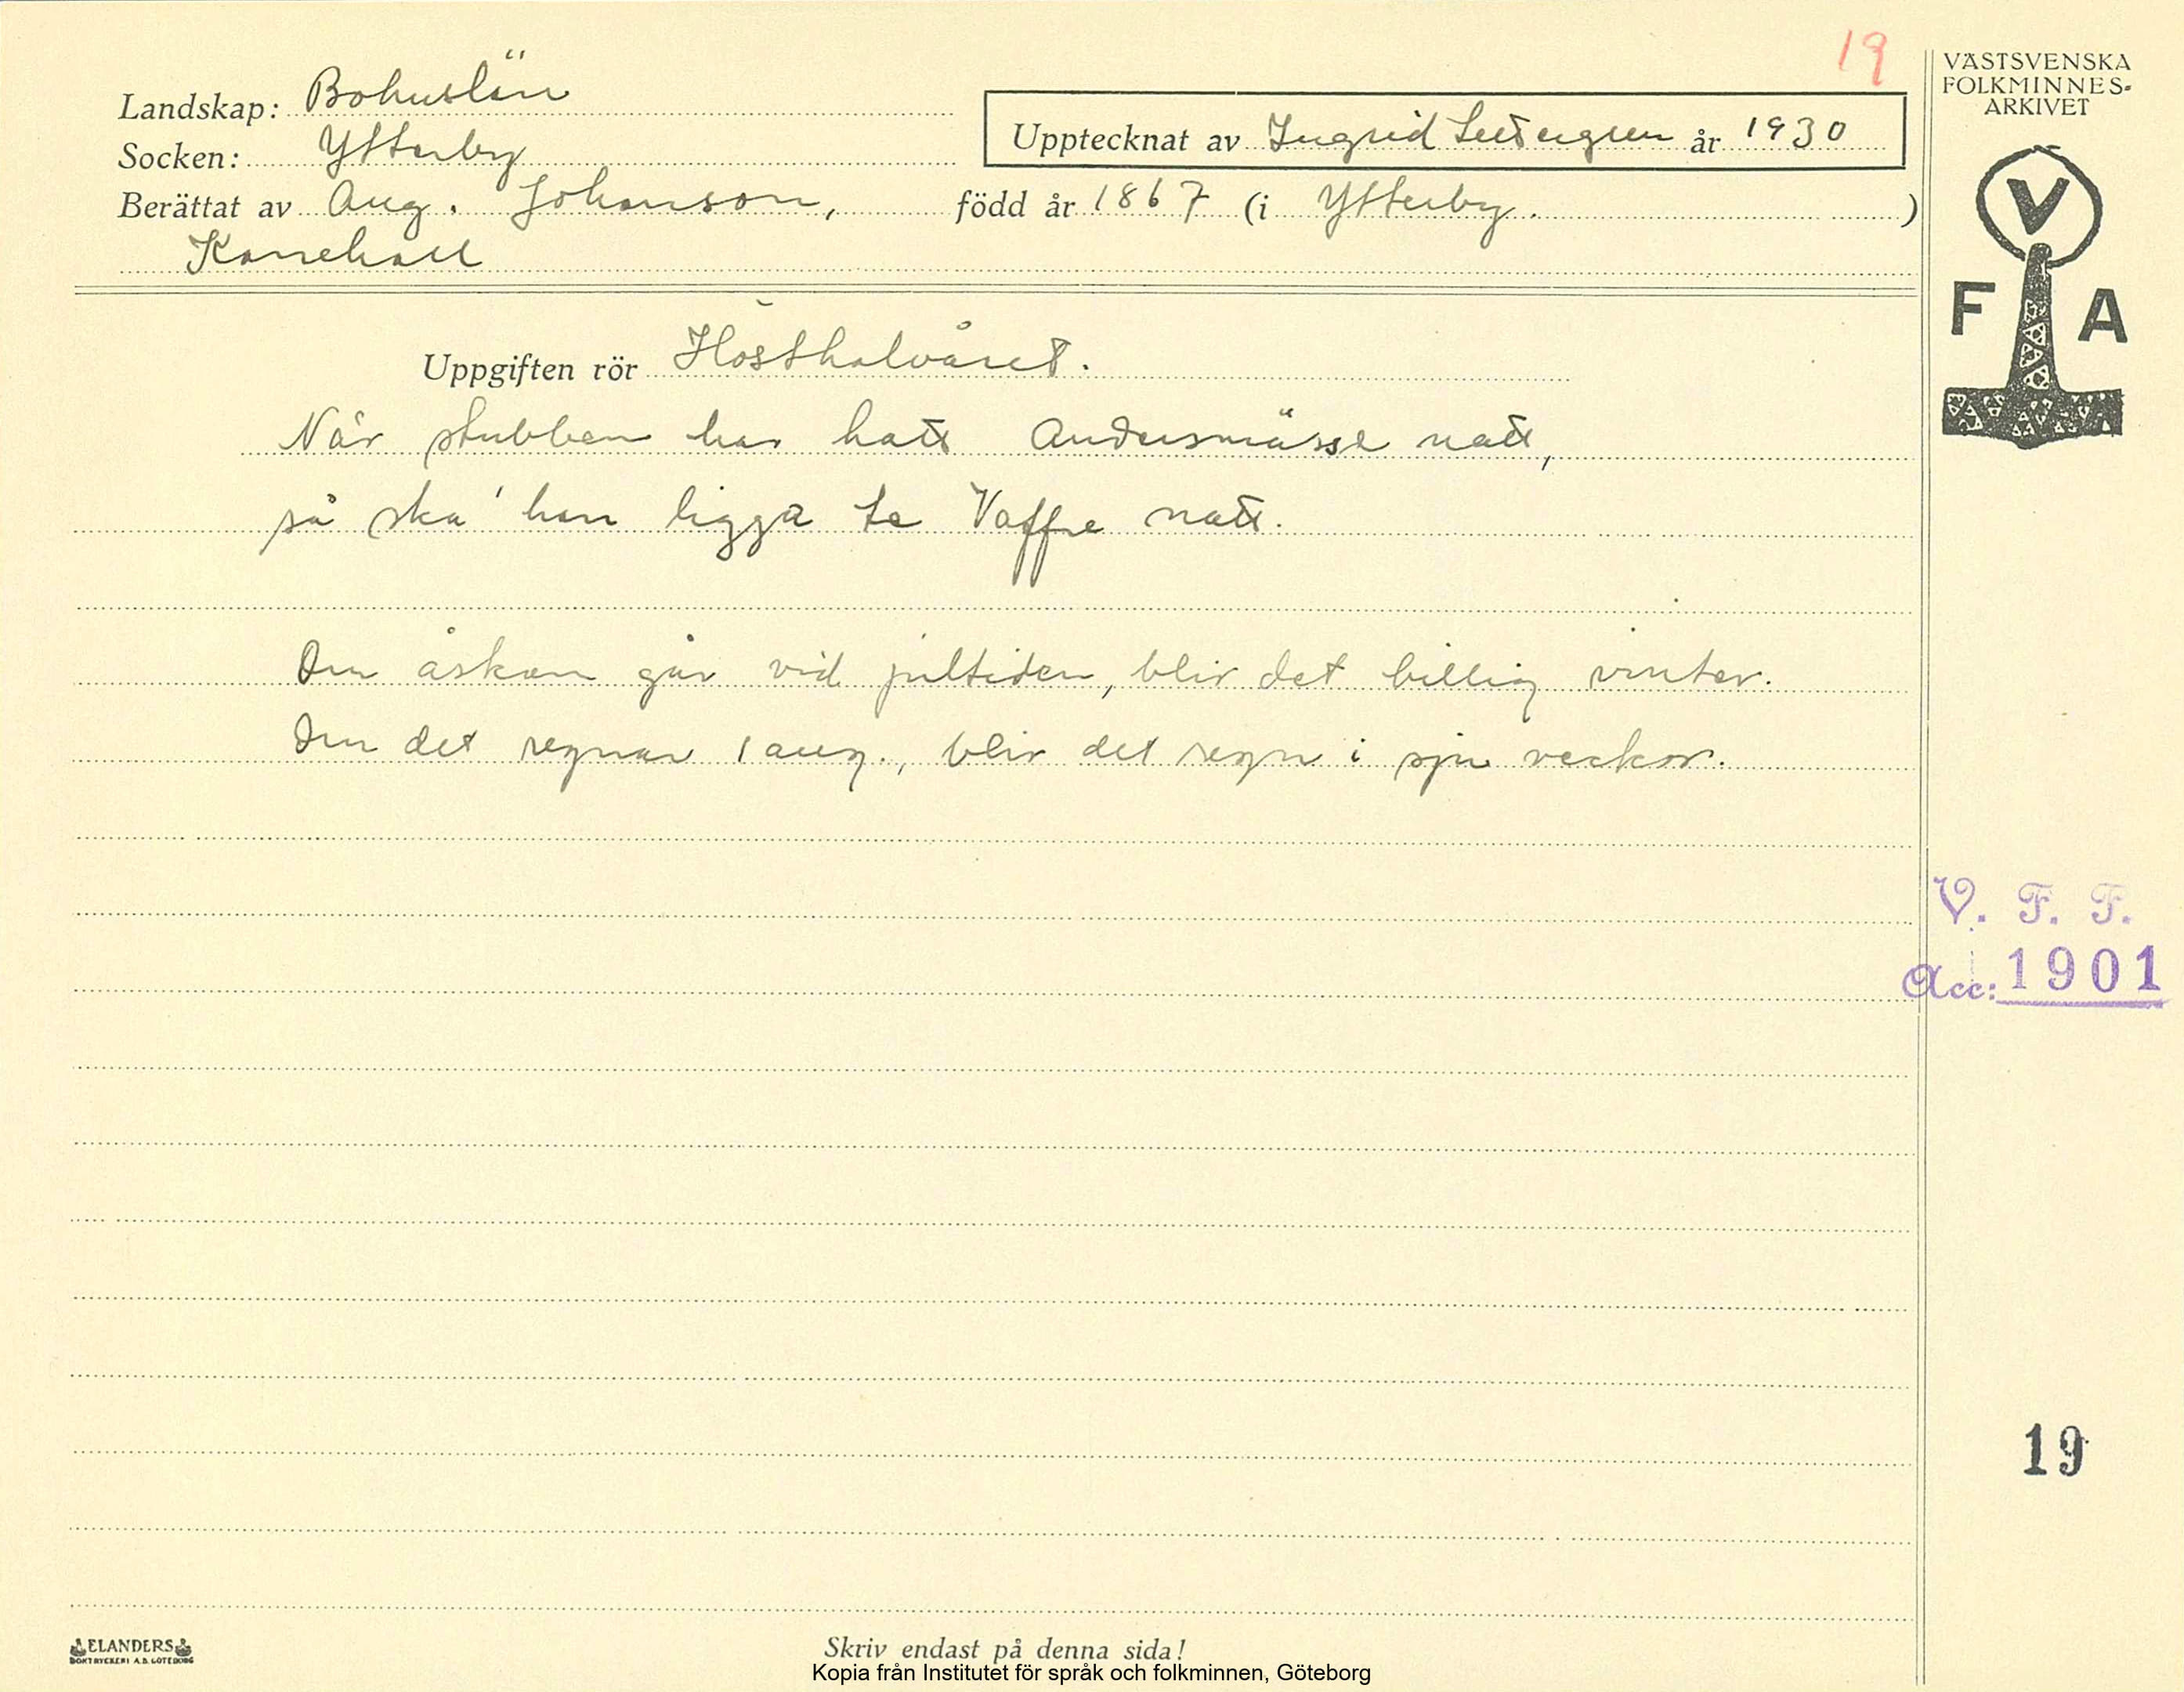 19
VÄSTSVENSKA
FOLKMINNES-
ARKIVET
Landskap: Bohuslän
Upptecknat av Ingrid år 1930
Socken: Ytterby
Berättat av Aug. Johanson, född år 1867 (i Ytterby. )
V
F A
Uppgiften rör Hösthalvåret.
När stubben har hatt Andersmässe natt,
så ska' han ligga te Vaffre natt.
Om åskan går vid jultiden, blir det billig vinter.
Om det regnar 1 aug., blir det regn i sju veckor.
V. F. F.
Acc: 1901
19
ELANDERS
BOKTRYCKERI A.B. GÖTEBORG
Skriv endast på denna sida!
Kopia från Institutet för språk och folkminnen, Göteborg